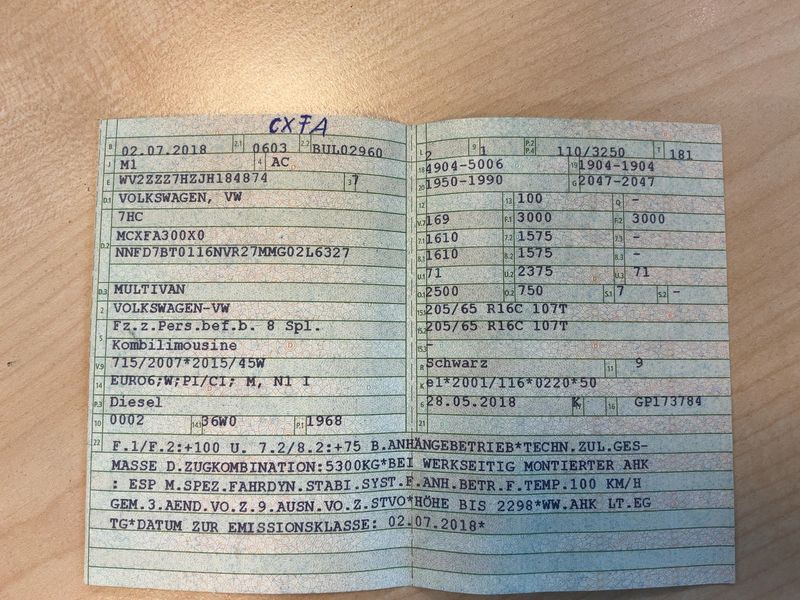 CXFA
B 02.07.2018 2.1 0603 2.2 BUL02960
J M1 4 AC
E WV2ZZZ7HZJH184874 3 7
D.1 VOLKSWAGEN, VW
7HC
D.2 MCXFA300X0
NNFD7BT0116NVR27MMG02L6327
D.3 MULTIVAN
2 VOLKSWAGEN-VW
5 Fz.z.Pers.bef.b. 8 Spl.
Kombilimousine
V.9 715/2007*2015/45W
14 EURO6;W;PI/CI; M, N1 I
P.3 Diesel
10 0002 14.1 36W0 P.1 1968
L 2 9 1 P.2 P.4 110/3250 T 181
18 4904-5006 19 1904-1904
20 1950-1990 G 2047-2047
12 13 100 Q -
V.7 169 F.1 3000 F.2 3000
7.1 1610 7.2 1575 7.3 -
8.1 1610 8.2 1575 8.3 -
U.1 71 U.2 2375 U.3 71
O.1 2500 O.2 750 S.1 7 S.2 -
15.1 205/65 R16C 107T
15.2 205/65 R16C 107T
15.3 -
R Schwarz 11 9
K e1*2001/116*0220*50
6 28.05.2018 17 K 16 GP173784
22 F.1/F.2:+100 U. 7.2/8.2:+75 B.ANHÄNGEBETRIEB*TECHN.ZUL.GES-
MASSE D.ZUGKOMBINATION:5300KG*BEI WERKSEITIG MONTIERTER AHK
: ESP M.SPEZ.FAHRDYN.STABI.SYST.F.ANH.BETR.F.TEMP.100 KM/H
GEM.3.AEND.VO.Z.9.AUSN.VO.Z.STVO*HÖHE BIS 2298*WW.AHK LT.EG
TG*DATUM ZUR EMISSIONSKLASSE: 02.07.2018*